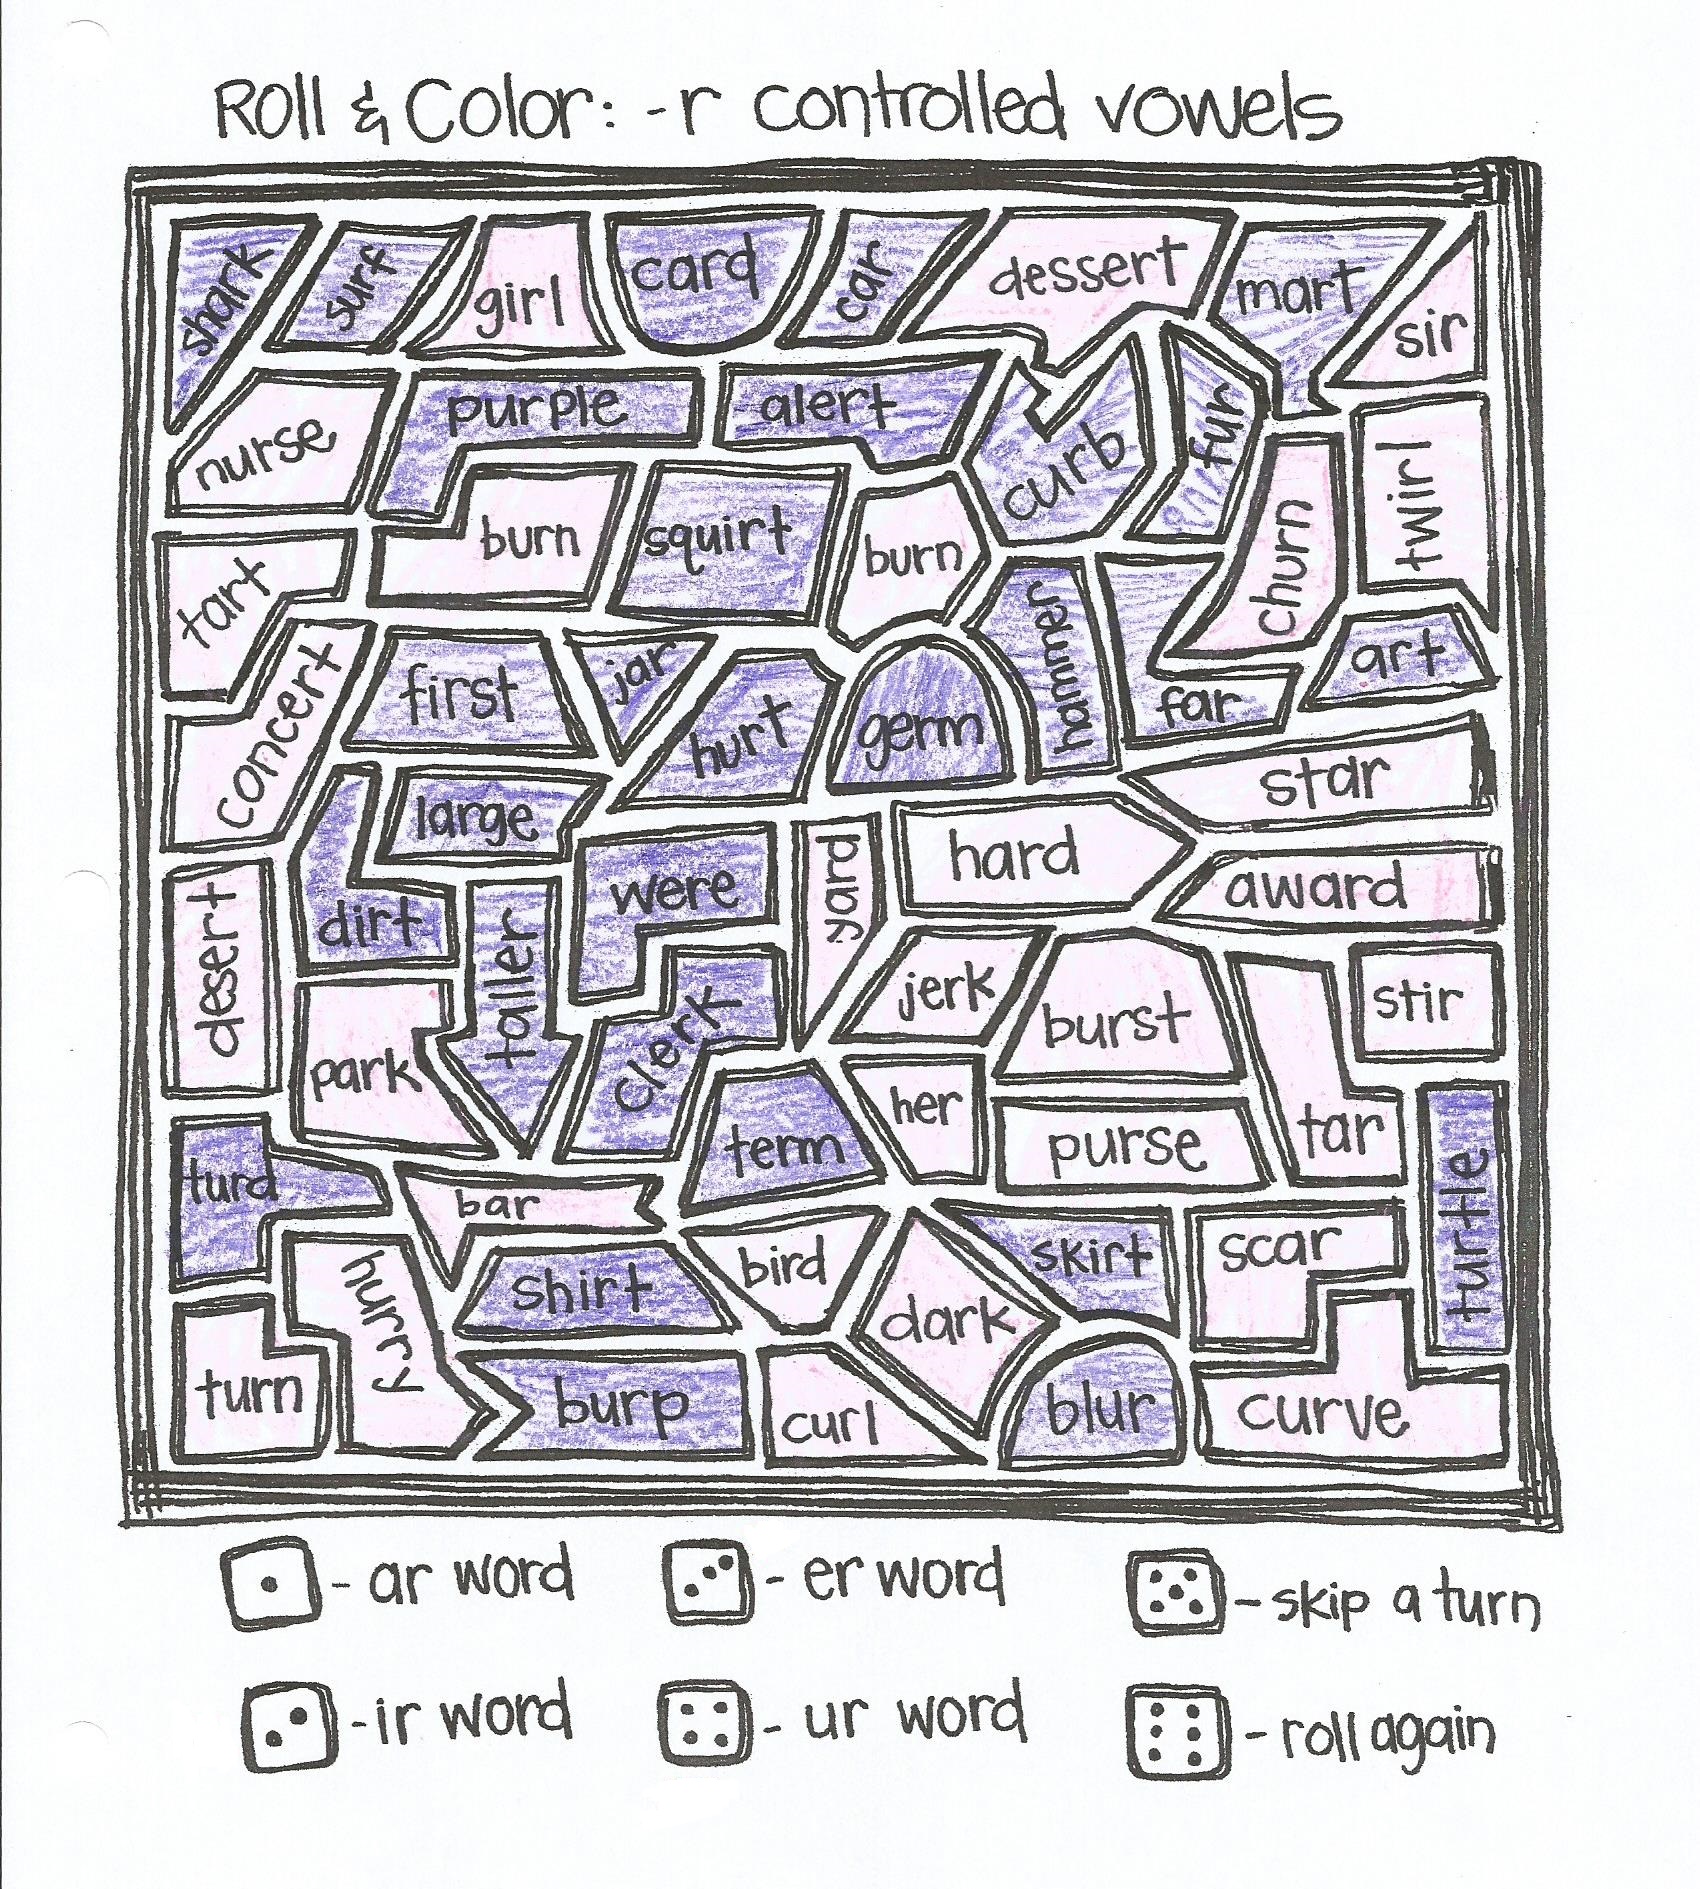 Roll & Color: -r controlled vowels
shark surf girl card car dessert mart sir
nurse purple alert curb fur twirl
tart burn squirt burn hammer churn
concert first jar hurt germ far art
large star
desert dirt taller were yard hard award
park clerk jerk burst stir
turd term her purse tar turtle
bar
hurry shirt bird dark skirt scar
turn burp curl blur curve
- ar word - er word - skip a turn
- ir word - ur word - roll again